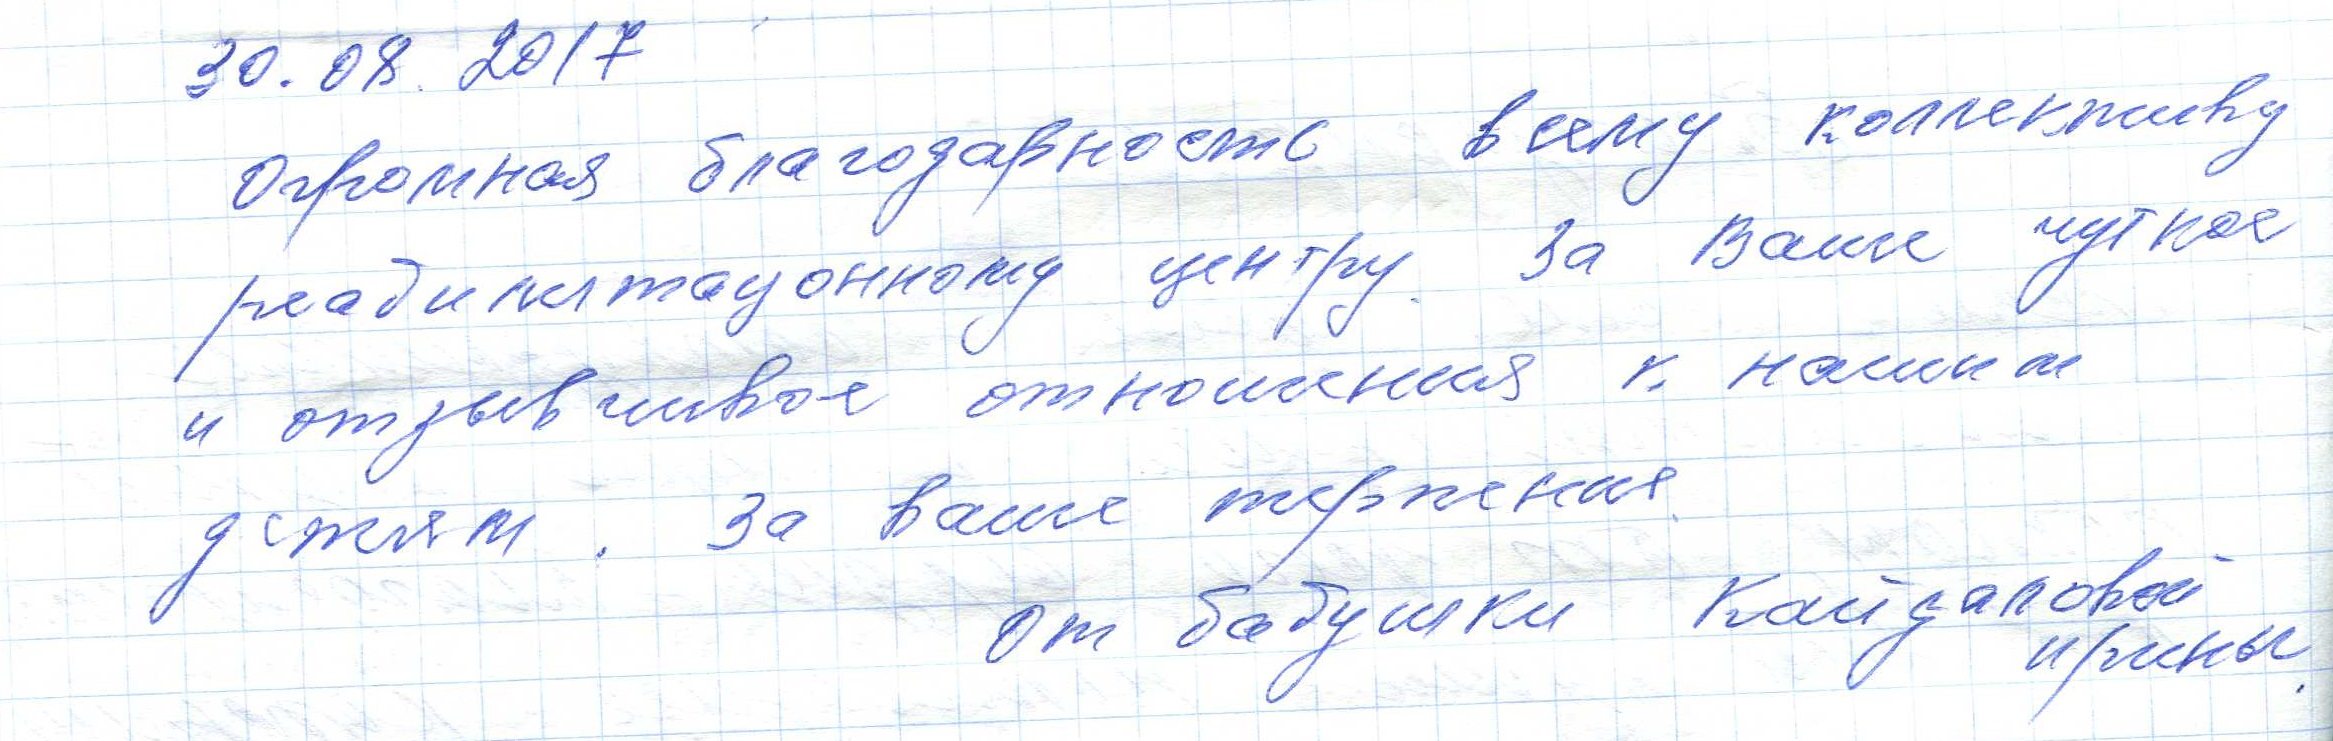 30.08.2017
Огромная благодарность всему коллективу
реабилитационному центру. За Ваше чуткое
и отзывчивое отношения к нашим
детям. За ваше терпения.
От бабушки Кайдаловой
Ирины.